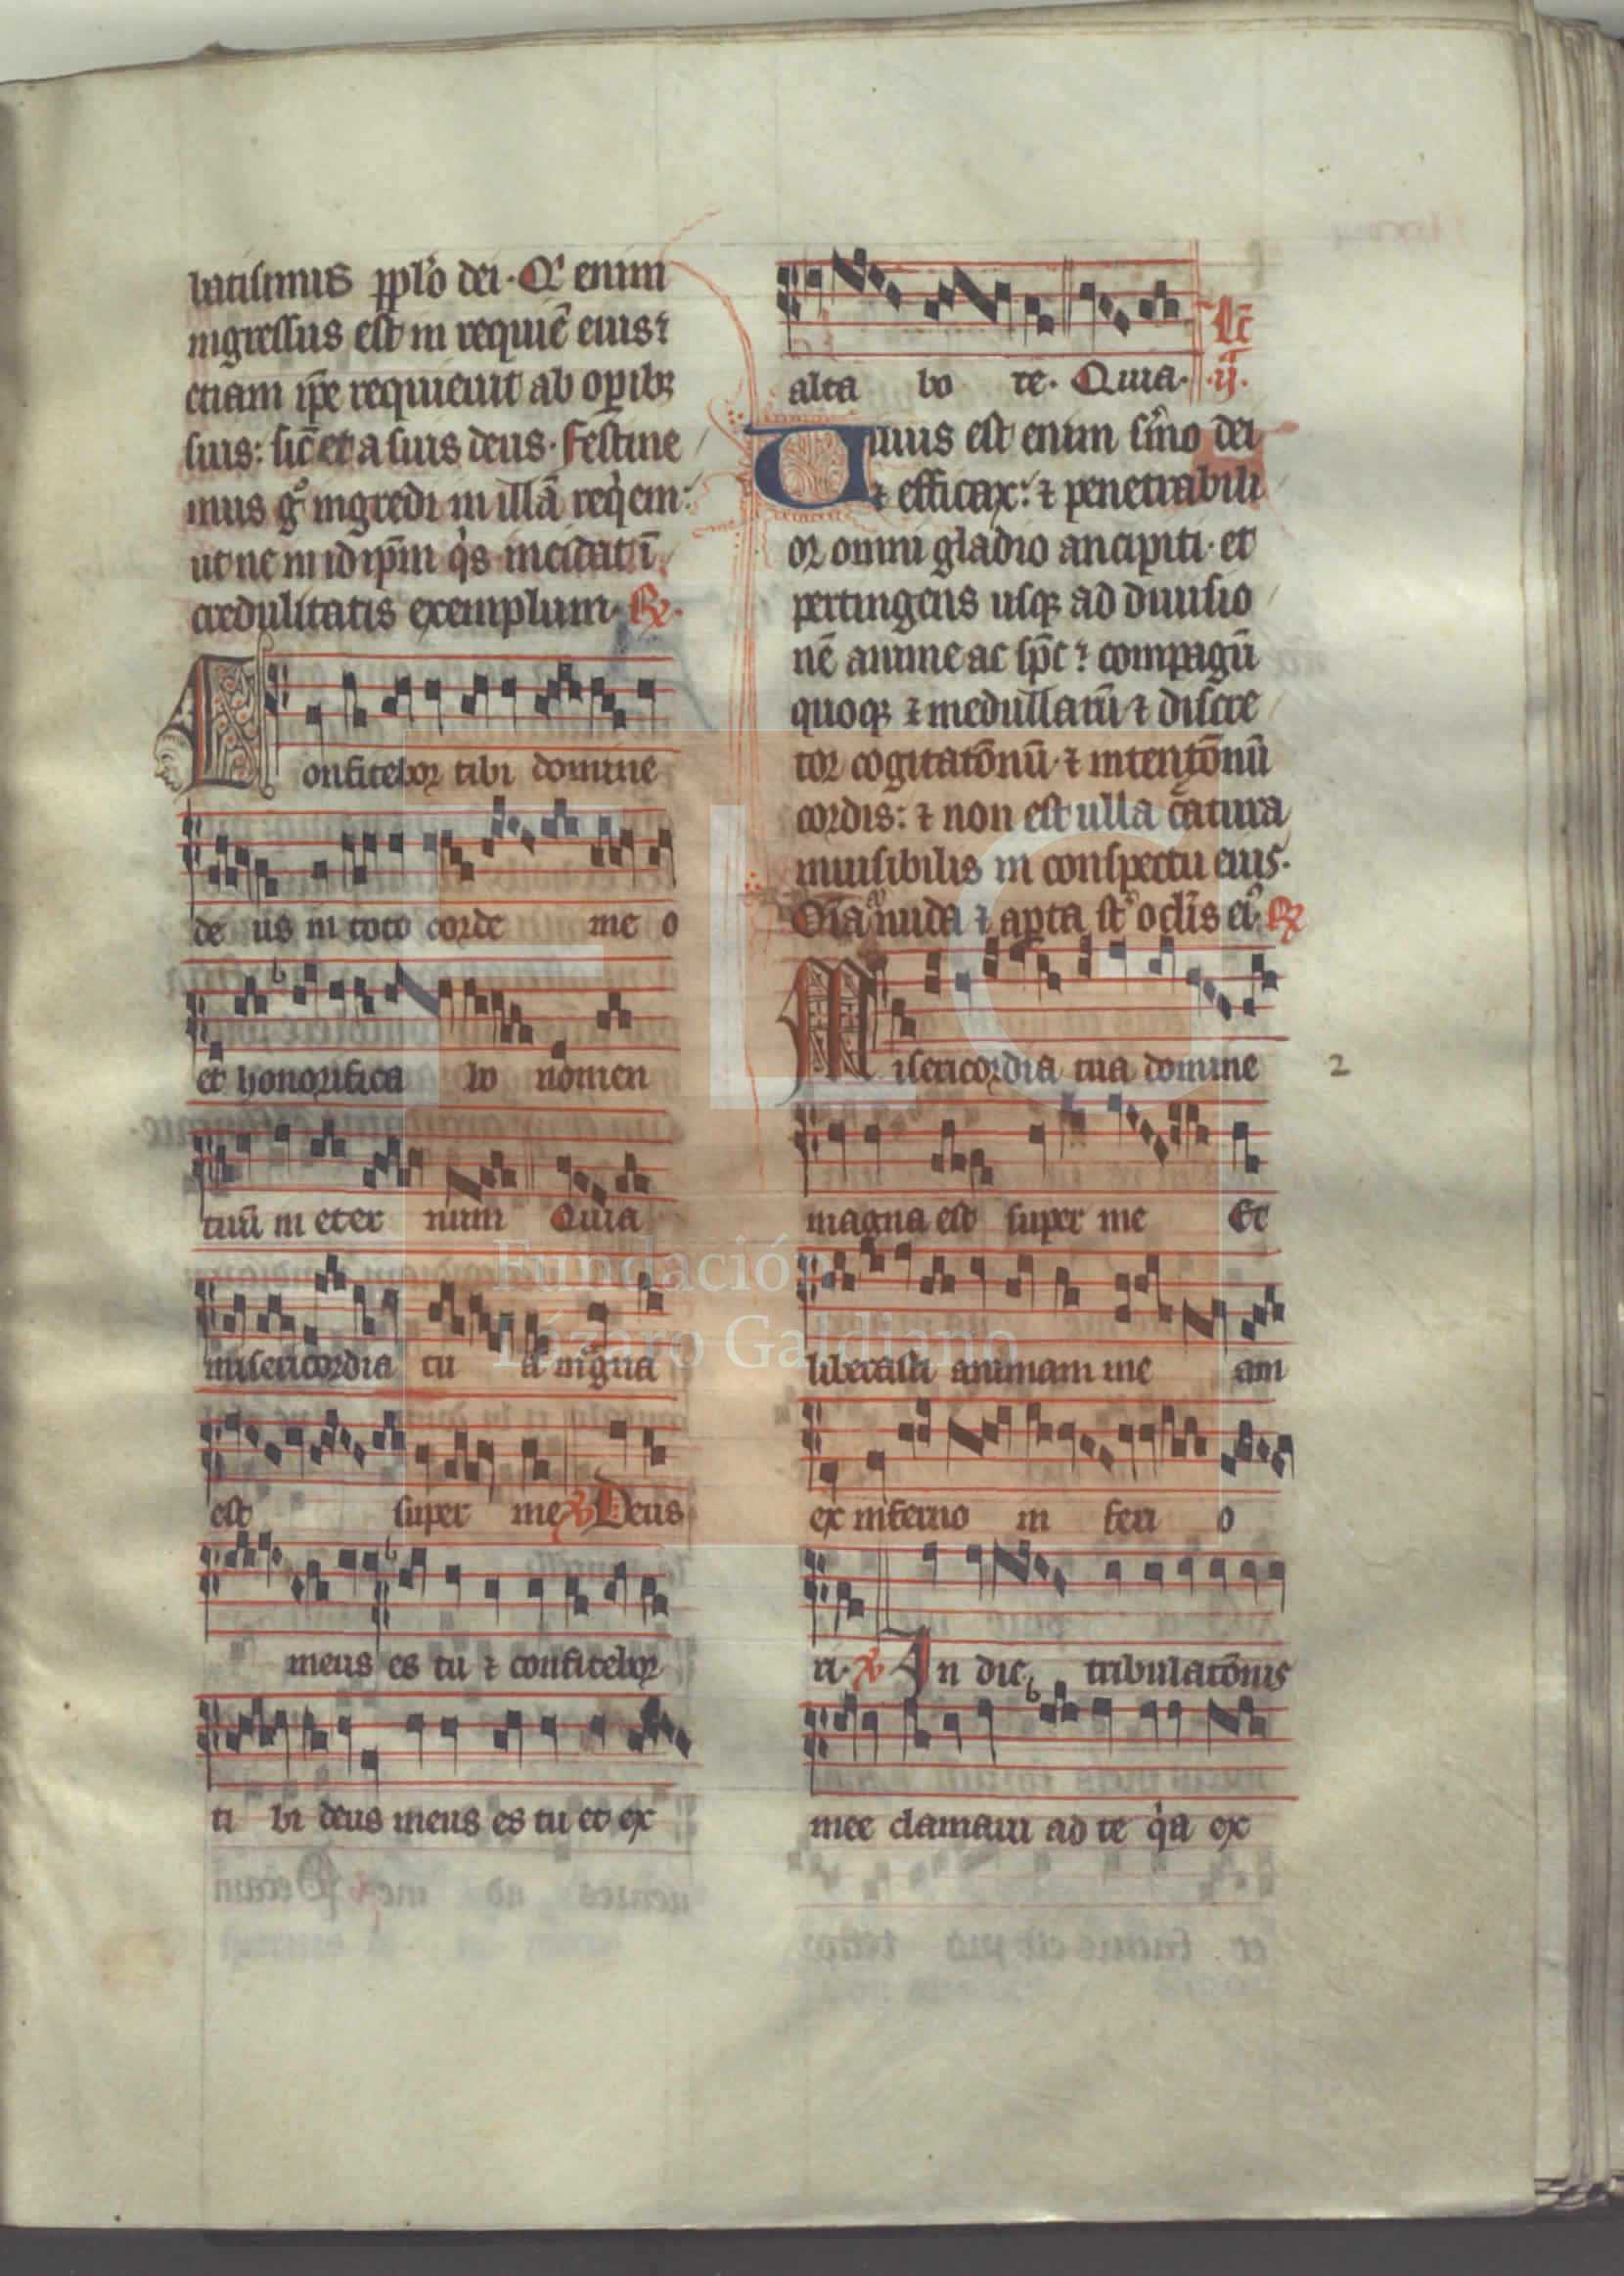 batismus pplo dei. Qi enim
ingressus est in requiē eius:
etiam ipe requieuit ab opibꝫ
suis: sic̄ et a suis deus. Festine
mus gͦ ingredi in illā reqͥem:
ut ne in idipm̄ qͥs incidat ī
credulitatis exemplum. ℞.
Confitebor tibi domine
de us in toto corde me o
et honorifica bo nomen
tuū in eter num Quia
misericordia tu a mḡna
est super me ℣ Deus
meus es tu ⁊ confitebor
ti bi deus meus es tu et ex
alta bo te. Quia. Lc̄
.ij.
Uiuus est enim s̄mo dei
⁊ efficax: ⁊ penetrabili
or omni gladio ancipiti. et
pertingens usqꝫ ad diuisio
nē anime ac sp̄c: compagū
quoqꝫ ⁊ medullarū ⁊ discre
tor cogitatōnū ⁊ intenxōnū
cordis: ⁊ non est ulla c̄atura
inuisibilis in conspectu eius.
Oīa nuda ⁊ apta st̄ oclīs eiꝰ ℞
Misericordia tua domine
2
magna est super me Et
liberasti animam me am
ex inferno in feri o
ri. ℣ In die tribulatōnis
mee clamaui ad te qͥa ex
Fundación
Lázaro Galdiano